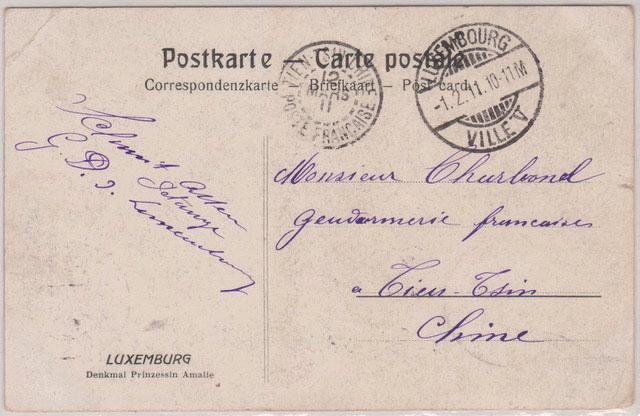 Postkarte – Carte postale
Correspondenzkarte – Briefkaart – Post card
TIEN-TSIN CHINE
12
MARS
11
POSTE FRANÇAISE
LUXEMBOURG
-1.2.11.10-11M
VILLE V
Monsieur Charbond
gendarmerie francaises
a Tien-Tsin
Chine
G. D. d. Luxembourg
LUXEMBURG
Denkmal Prinzessin Amalie